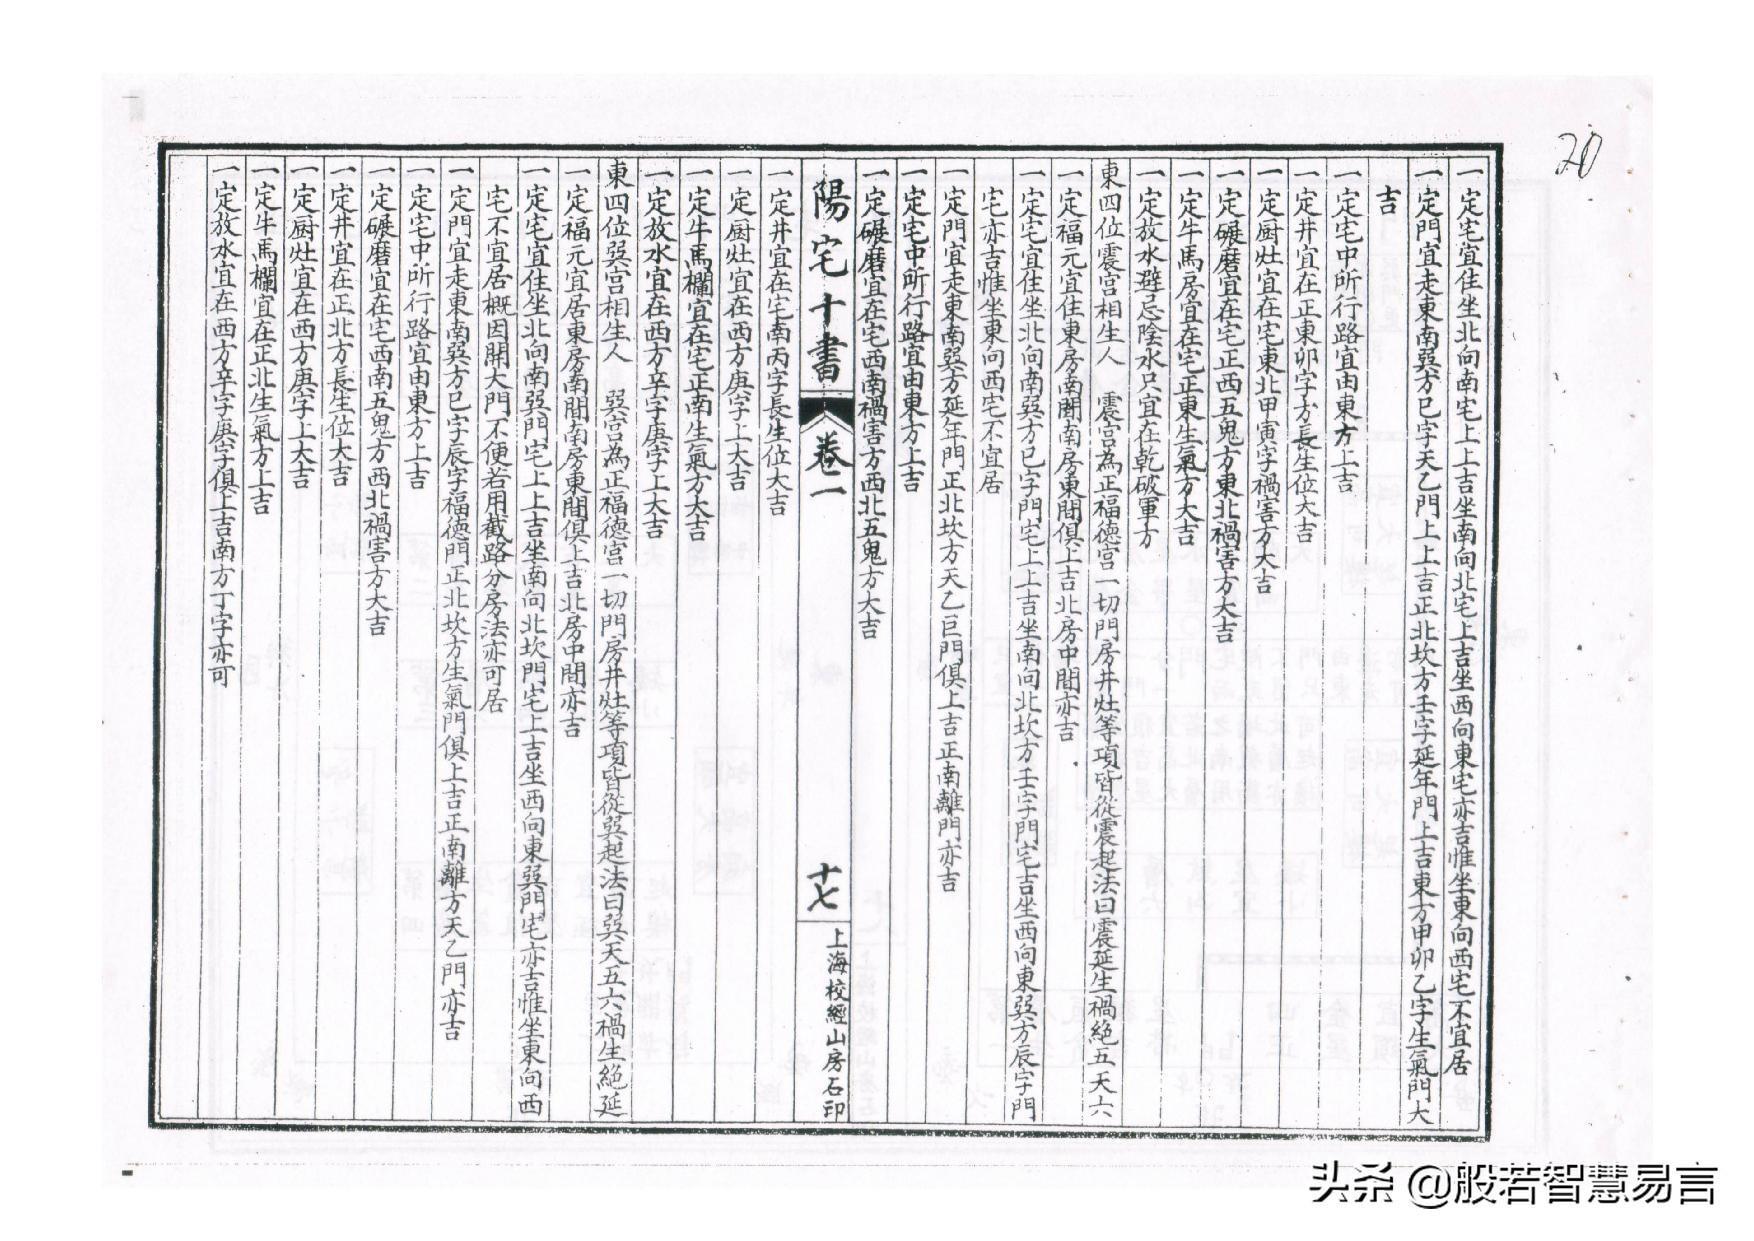 20
一定宅宜住坐北向南宅上上吉坐南向北宅上吉坐西向東宅亦吉惟坐東向西宅不宜居
一定門宜走東南巽方巳字天乙門上上吉正北坎方壬字延年門上吉東方甲卯乙字生氣門大
吉
一定宅中所行路宜由東方上吉
一定井宜在正東卯字方長生位大吉
一定厨灶宜在宅東北甲寅字禍害方大吉
一定碾磨宜在宅正西五鬼方東北禍害方大吉
一定牛馬房宜在宅正東生氣方大吉
一定放水避忌陰水只宜在乾破軍方
東四位震宮相生人　震宮為正福德宮一切門房井灶等項皆從震起法曰震延生禍絶五天六
一定福元宜住東房南間南房東間俱上吉北房中間亦吉
一定宅宜住坐北向南巽方巳字門宅上上吉坐南向北坎方壬字門宅吉坐西向東巽方辰字門
宅亦吉惟坐東向西宅不宜居
一定門宜走東南巽方延年門正北坎方天乙巨門俱上吉正南離門亦吉
一定宅中所行路宜由東方上吉
一定碾磨宜在宅西南禍害方西北五鬼方大吉
陽宅十書　卷一　十七　上海校經山房石印
一定井宜在宅南丙字長生位大吉
一定厨灶宜在西方庚字上大吉
一定牛馬欄宜在宅正南生氣方大吉
一定放水宜在西方辛字庚字上大吉
東四位巽宮相生人　巽宮為正福德宮一切門房井灶等項皆從巽起法曰巽天五六禍生絶延
一定福元宜居東房南間南房東間俱上吉北房中間亦吉
一定宅宜住坐北向南巽門宅上上吉坐南向北坎門宅上吉坐西向東巽門宅亦吉惟坐東向西
宅不宜居概因開大門不便若用截路分房法亦可居
一定門宜走東南巽方巳字辰字福德門正北坎方生氣門俱上吉正南離方天乙門亦吉
一定宅中所行路宜由東方上吉
一定碾磨宜在宅西南五鬼方西北禍害方大吉
一定井宜在正北方長生位大吉
一定厨灶宜在西方庚字上大吉
一定牛馬欄宜在正北生氣方上吉
一定放水宜在西方辛字庚字俱上吉南方丁字亦可
头条 @般若智慧易言